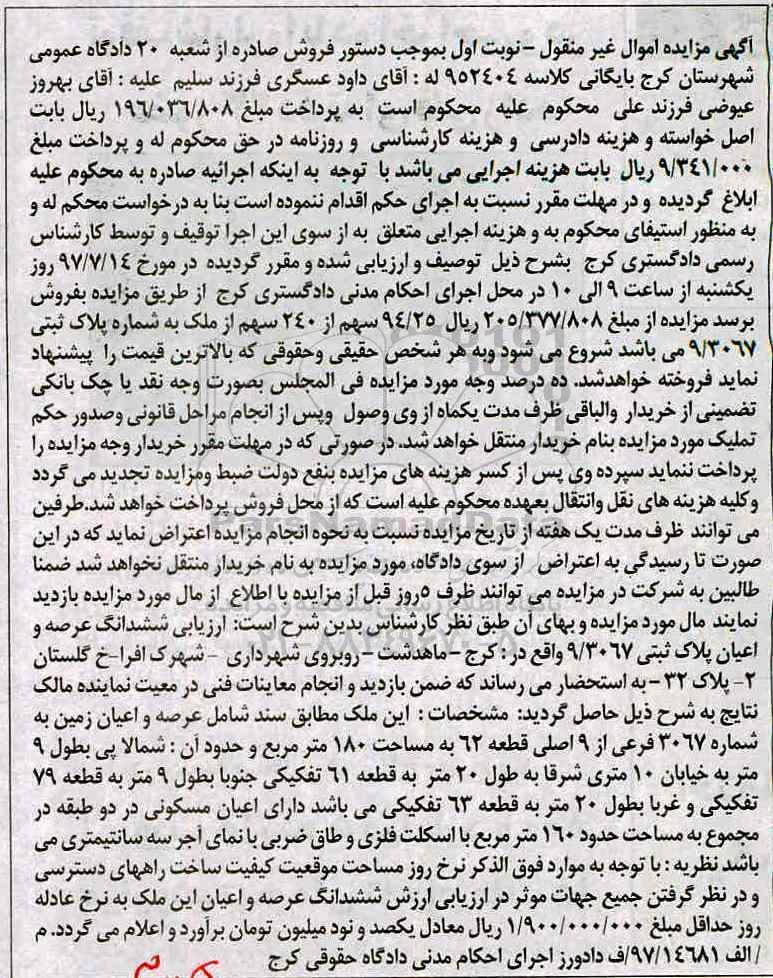 آگهی مزایده اموال غیر منقول – نوبت اول بموجب دستور فروش صادره از شعبه ۲۰ دادگاه عمومی
شهرستان کرج بایگانی کلاسه ۹۵۲۴۰۴ له : آقای داود عسگری فرزند سلیم علیه : آقای بهروز
عیوضی فرزند علی محکوم علیه محکوم است به پرداخت مبلغ ۱۹۶/۰۳۶/۸۰۸ ریال بابت
اصل خواسته و هزینه دادرسی و هزینه کارشناسی و روزنامه در حق محکوم له و پرداخت مبلغ
۹/۳۴۱/۰۰۰ ریال بابت هزینه اجرایی می باشد با توجه به اینکه اجرائیه صادره به محکوم علیه
ابلاغ گردیده و در مهلت مقرر نسبت به اجرای حکم اقدام ننموده است بنا به درخواست محکم له و
به منظور استیفای محکوم به و هزینه اجرایی متعلق به از سوی این اجرا توقیف و توسط کارشناس
رسمی دادگستری کرج بشرح ذیل توصیف و ارزیابی شده و مقرر گردیده در مورخ ۹۷/۷/۱۴ روز
یکشنبه از ساعت ۹ الی ۱۰ در محل اجرای احکام مدنی دادگستری کرج از طریق مزایده بفروش
برسد مزایده از مبلغ ۲۰۵/۳۷۷/۸۰۸ ریال ۹۴/۲۵ سهم از ۲۴۰ سهم از ملک به شماره پلاک ثبتی
۹/۳۰۶۷ می باشد شروع می شود وبه هر شخص حقیقی وحقوقی که بالاترین قیمت را پیشنهاد
نماید فروخته خواهدشد. ده درصد وجه مورد مزایده فی المجلس بصورت وجه نقد یا چک بانکی
تضمینی از خریدار والباقی ظرف مدت یکماه از وی وصول وپس از انجام مراحل قانونی وصدور حکم
تملیک مورد مزایده بنام خریدار منتقل خواهد شد. در صورتی که در مهلت مقرر خریدار وجه مزایده را
پرداخت ننماید سپرده وی پس از کسر هزینه های مزایده بنفع دولت ضبط ومزایده تجدید می گردد
وکلیه هزینه های نقل وانتقال بعهده محکوم علیه است که از محل فروش پرداخت خواهد شد.طرفین
می توانند ظرف مدت یک هفته از تاریخ مزایده نسبت به نحوه انجام مزایده اعتراض نماید که در این
صورت تا رسیدگی به اعتراض از سوی دادگاه، مورد مزایده به نام خریدار منتقل نخواهد شد ضمنا
طالبین به شرکت در مزایده می توانند ظرف ۵روز قبل از مزایده با اطلاع از مال مورد مزایده بازدید
نمایند مال مورد مزایده و بهای آن طبق نظر کارشناس بدین شرح است: ارزیابی ششدانگ عرصه و
اعیان پلاک ثبتی ۹/۳۰۶۷ واقع در : کرج – ماهدشت – روبروی شهرداری – شهرک افرا–خ گلستان
۲– پلاک ۳۲ – به استحضار می رساند که ضمن بازدید و انجام معاینات فنی در معیت نماینده مالک
نتایج به شرح ذیل حاصل گردید: مشخصات : این ملک مطابق سند شامل عرصه و اعیان زمین به
شماره ۳۰۶۷ فرعی از ۹ اصلی قطعه ۶۲ به مساحت ۱۸۰ متر مربع و حدود آن : شمالا پی بطول ۹
متر به خیابان ۱۰ متری شرقا به طول ۲۰ متر به قطعه ۶۱ تفکیکی جنوبا بطول ۹ متر به قطعه ۷۹
تفکیکی و غربا بطول ۲۰ متر به قطعه ۶۳ تفکیکی می باشد دارای اعیان مسکونی در دو طبقه در
مجموع به مساحت حدود ۱۶۰ متر مربع با اسکلت فلزی و طاق ضربی با نمای آجر سه سانتیمتری می
باشد نظریه : با توجه به موارد فوق الذکر نرخ روز مساحت موقعیت کیفیت ساخت راههای دسترسی
و در نظر گرفتن جمیع جهات موثر در ارزیابی ارزش ششدانگ عرصه و اعیان این ملک به نرخ عادله
روز حداقل مبلغ ۱/۹۰۰/۰۰۰/۰۰۰ ریال معادل یکصد و نود میلیون تومان برآورد و اعلام می گردد. م
/ الف ۹۷/۱۴۶۸۱/ف دادورز اجرای احکام مدنی دادگاه حقوقی کرج